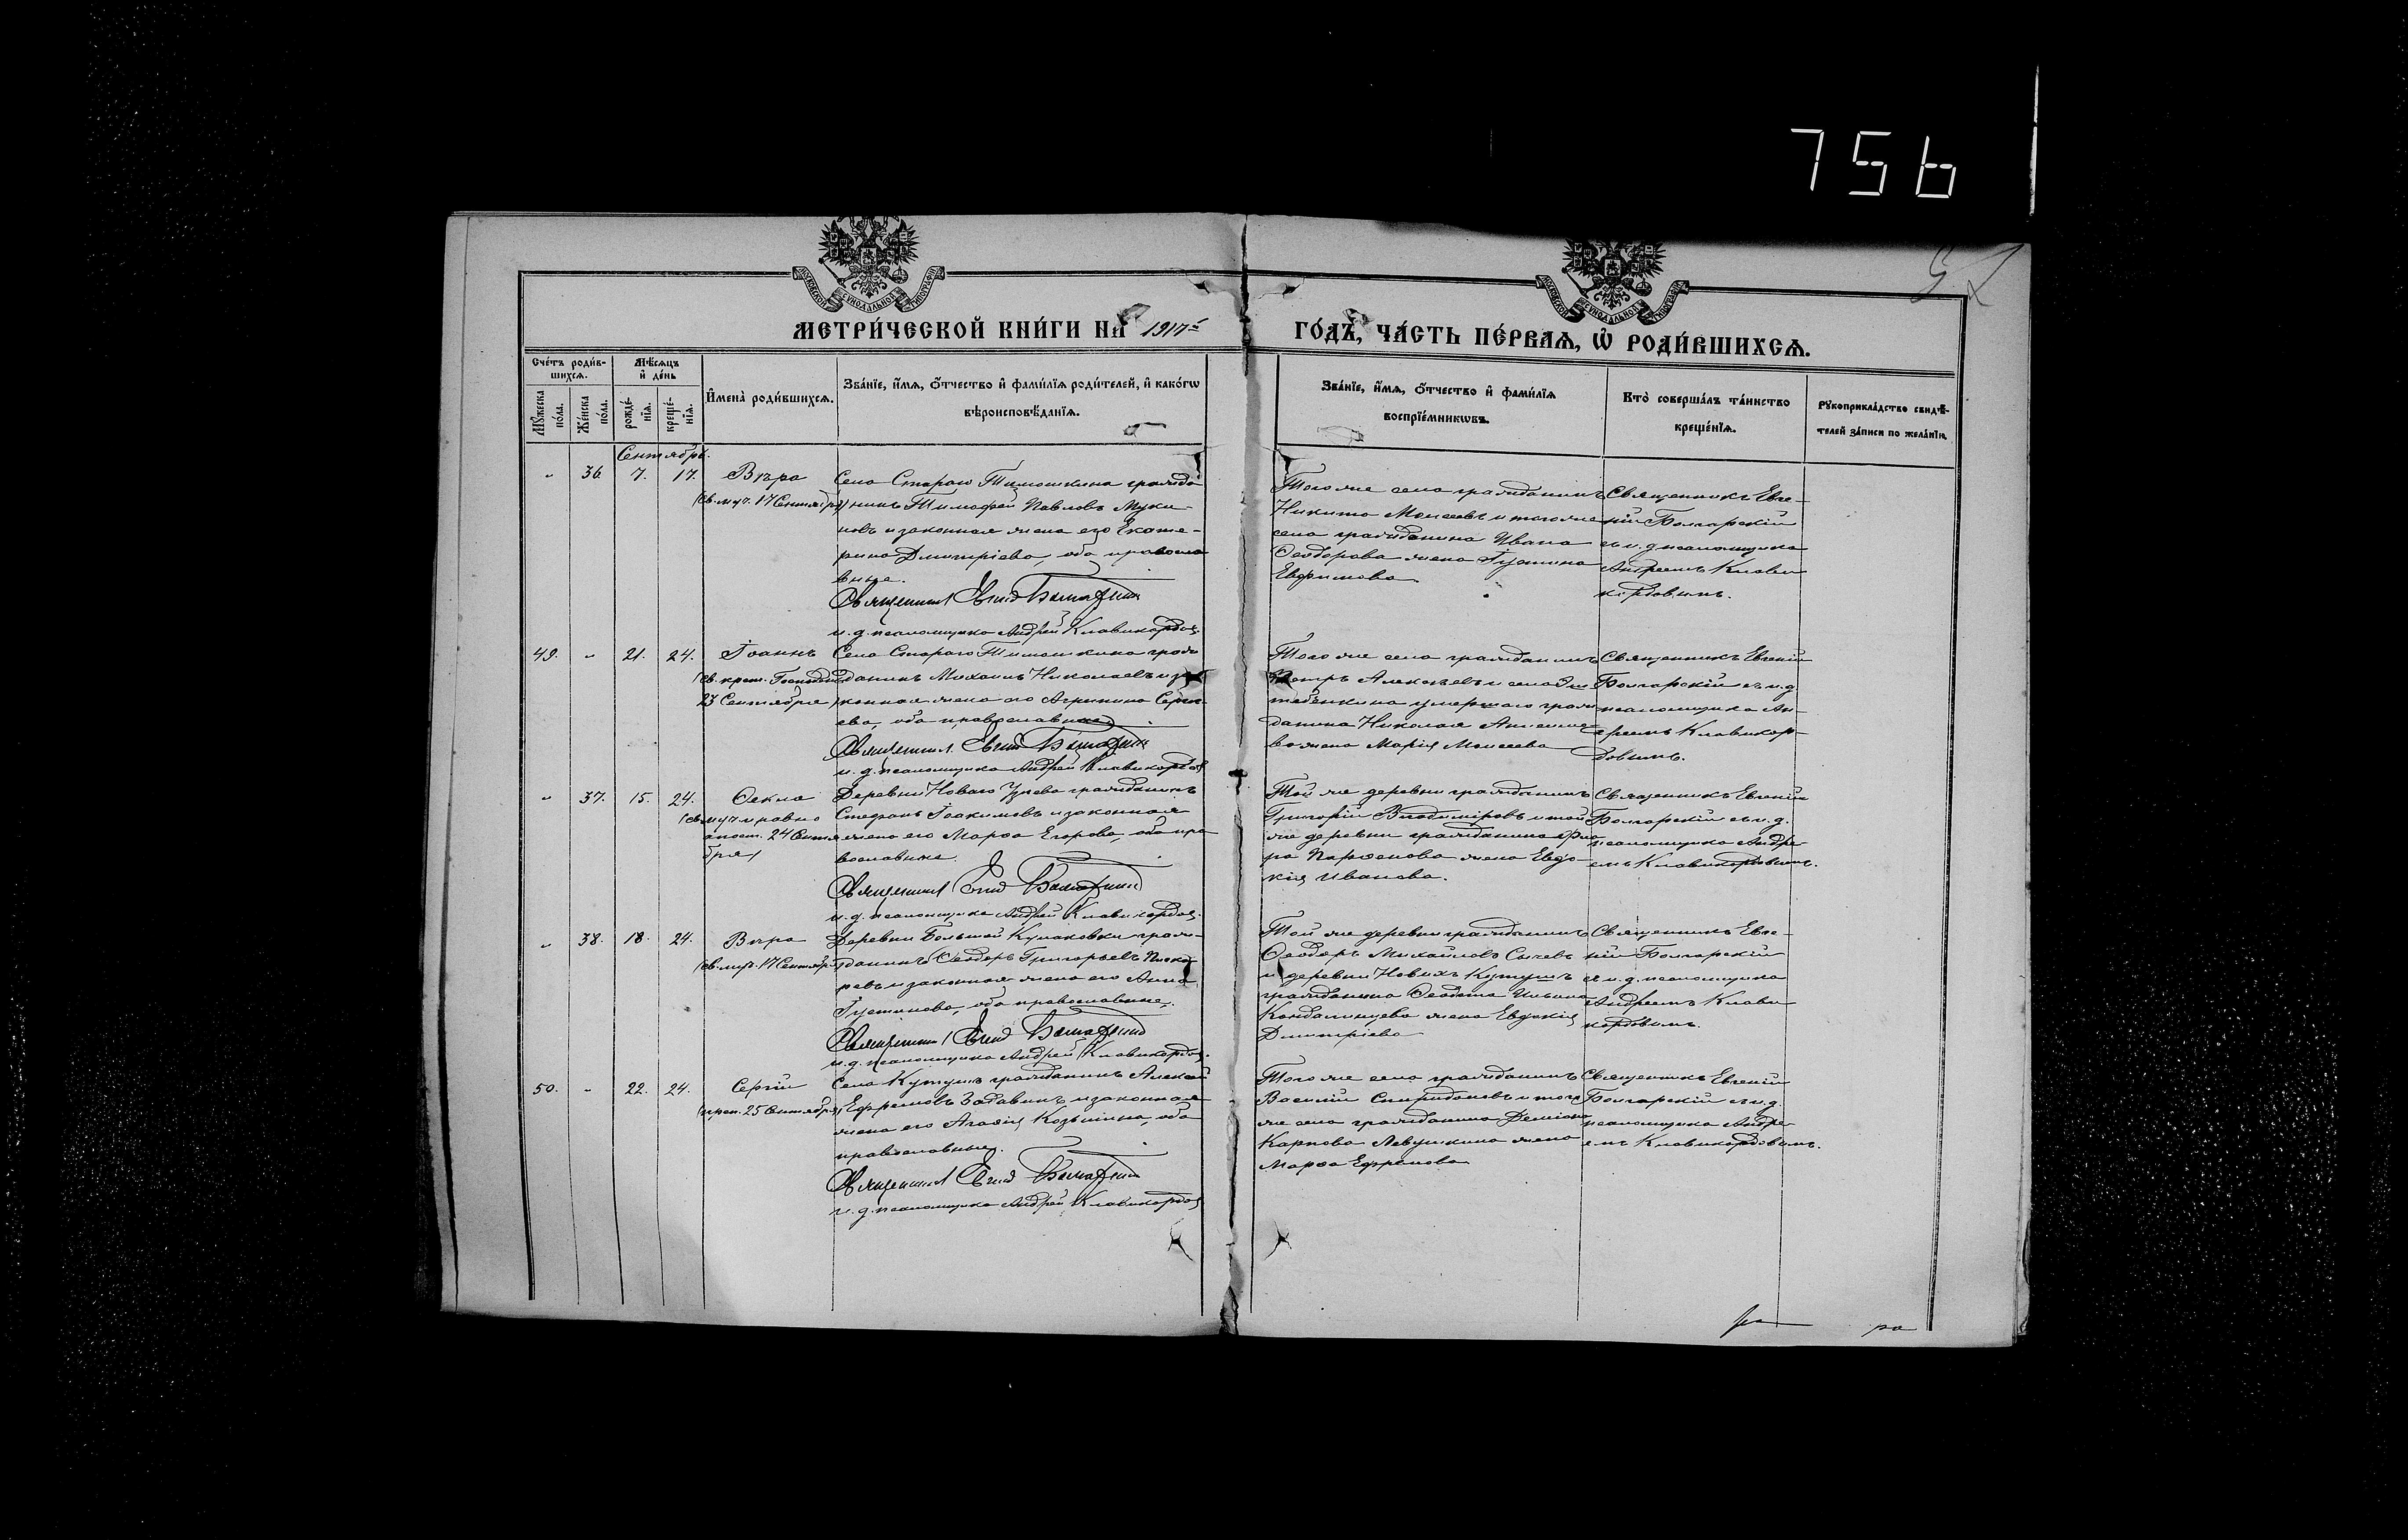 756
МОСКОВСКОЙ СΥНОДАЛЬНОЙ ТИПОГРАФІИ
МОСКОВСКОЙ СΥНОДАЛЬНОЙ ТИПОГРАФІИ
МЕТРИ́ЧЕСКОЙ КНИ́ГИ НА 1917й
ГО́ДЪ, ЧА́СТЬ ПЕ́РВАѦ, Ѡ҆ РОДИ́ВШИХСѦ.
Сче́тъ роди́в-
шихсѧ.
Мꙋ́жеска по́ла.
Же́нска по́ла.
Мѣ́сѧцъ
и҆ де́нь
рожде́-нїѧ.
креще́-нїѧ.
И҆мена̀ роди́вшихсѧ.
Зва́нїе, и҆́мѧ, ѻ҆́тчество и҆ фами́лїѧ роди́телей, и҆ како́гѡ
вѣроисповѣ́данїѧ.
Зва́нїе, и҆́мѧ, ѻ҆́тчество и҆ фами́лїѧ
воспрїе́мникѡвъ.
Кто̀ соверша́лъ та́инство
креще́нїѧ.
Рꙋкоприкла́дство свидѣ́-
телей за́писи по жела́нїю.
Сентябрь.
" 36. 7. 17. Вѣра
(св. муч. 17 Сентября)
Села Стараго Тимошкина гражда
нинъ Тимофей Павловъ Муки-
новъ и законная жена его Екате-
рина Дмитріева, оба правосла
вные.
Священникъ Евгеній Болгарскій
и. д. псаломщика Андрей Клавикордов
Того же села гражданинъ
Никита Моисеевъ и того же
села гражданина Ивана
Ѳеодорова жена Іустина
Евфимова
Священникъ Евге-
ній Болгарскій
съ и. д. псаломщика
Андреемъ Клави
кордовымъ.
49. " 21. 24. Іоаннъ
(св. крест. Господня
23 Сентября)
Села Стараго Тимошкина граж
данинъ Михаилъ Николаевъ и за
конная жена его Агрипина Серге
ева, оба православные
Священникъ Евгеній Болгарскій
и. д. псаломщика Андрей Клавикордов
Того же села гражданинъ
Петръ Алексѣевъ и села
умершаго граж
данина Николая
жена Марія Моисеева
Священникъ Евгеній
Болгарскій съ и. д.
псаломщика Ан-
дреемъ Клавикор-
довымъ.
" 37. 15. 24. Ѳекла
(св. муч. и равно
апост. 24 Сентя
бря)
Деревни Новаго гражданинъ
Стефанъ Іоакимовъ и законная
жена его Марѳа Егорова, оба пра
вославные.
Священникъ Евгеній Болгарскій
и. д. псаломщика Андрей Клавикордов
Той же деревни гражданинъ
Григорій Владиміровъ и той
же деревни гражданина Фло
ра Парѳенова жена Евдо-
кія Иванова.
Священникъ Евгеній
Болгарскій съ и. д.
псаломщика Андре-
емъ Клавикордовымъ.
" 38. 18. 24. Вѣра
(св. муч. 17 Сентября)
Деревни Большой Кулаковки граж-
данинъ Ѳеодоръ Григорьевъ
и законная жена его Анна
Іустинова, оба православные.
Священникъ Евгеній Болгарскій
и. д. псаломщика Андрей Клавикордов.
Той же деревни гражданинъ
Ѳеодоръ Михайловъ Сычевъ
и деревни Новыхъ Кутушъ
гражданина Ѳедота Ильина
жена Евдокія
Дмитріева
Священникъ Евге-
ній Болгарскій
съ и. д. псаломщика
Андреемъ Клави
кордовымъ.
50. " 22. 24. Сергій
(преп. 25 Сентября)
Села Кутушъ гражданинъ Алексѣй
Ефремовъ Забавинъ и законная
жена его Агаѳія Козьмина, оба
православные.
Священникъ Евгеній Болгарскій
и. д. псаломщика Андрей Клавикордов
Того же села гражданинъ
Василій Спиридоновъ и того
же села гражданина Деміана
Карпова Левушкина жена
Марѳа Ефремова
Священникъ Евгеній
Болгарскій съ и. д.
псаломщика Андре-
емъ Клавикордовымъ.